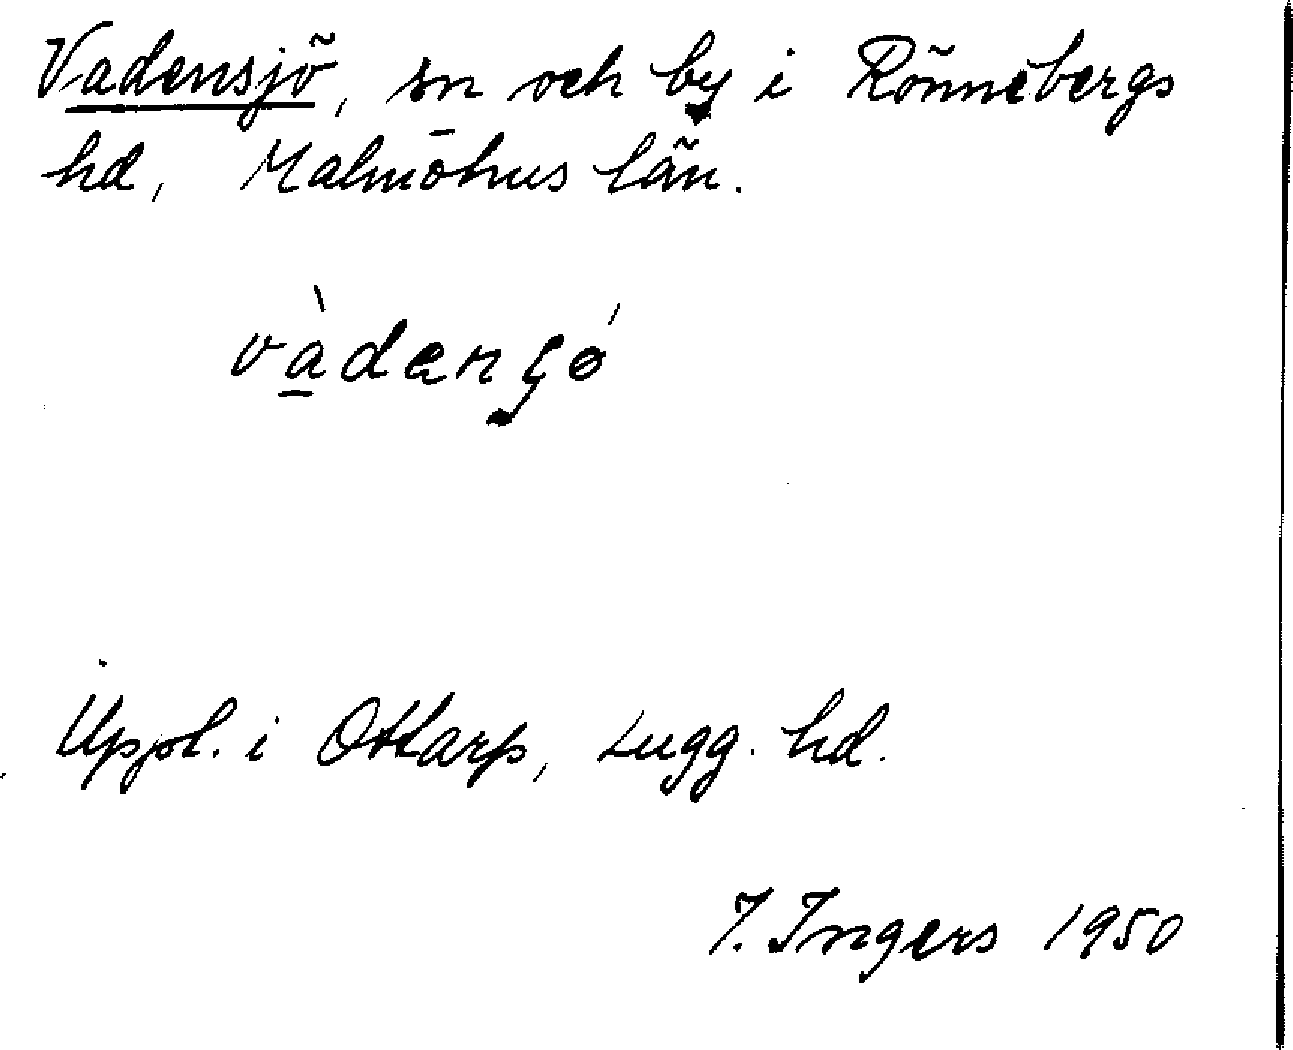 Vadensjö, sn och by i Rönnebergs
hd, Malmöhus län.
vàdənʂǿ
Uppt. i Ottarp, Lugg. hd.
I. Ingers 1950